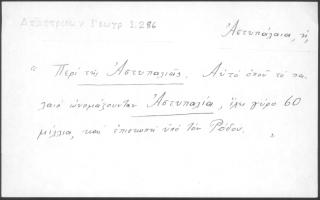 Δημητριέων Γεωγρ 1,286
Ἀστυπάλαια, ἡ,
“ Περὶ τῆς Ἀστυπαλιᾶς. Αὐτὸ ὁποῦ τὸ πα-
λαιὸ ὠνομάζουνταν Ἀστυπαλία, ἔχει γύρο 60
μίλλια, καὶ ἐπισκοπὴ ὑπὸ τὸν Ρόδου. ”